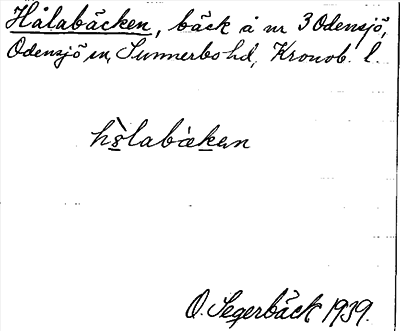 Hålabäcken, bäck å nr 3 Odensjö,
Odensjö sn, Sunnerbo hd, Kronob. l.
hòlabàken
O. Segerbäck 1939.